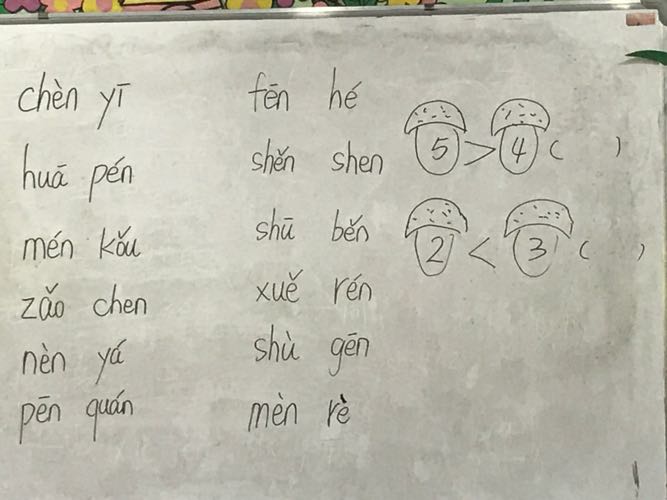 chèn yī
huā pén
mén kǒu
zǎo chen
nèn yá
pēn quán
fēn hé
shěn shen
shū běn
xuě rén
shù gēn
mèn rè
5 > 4 ( )
2 < 3 ( )